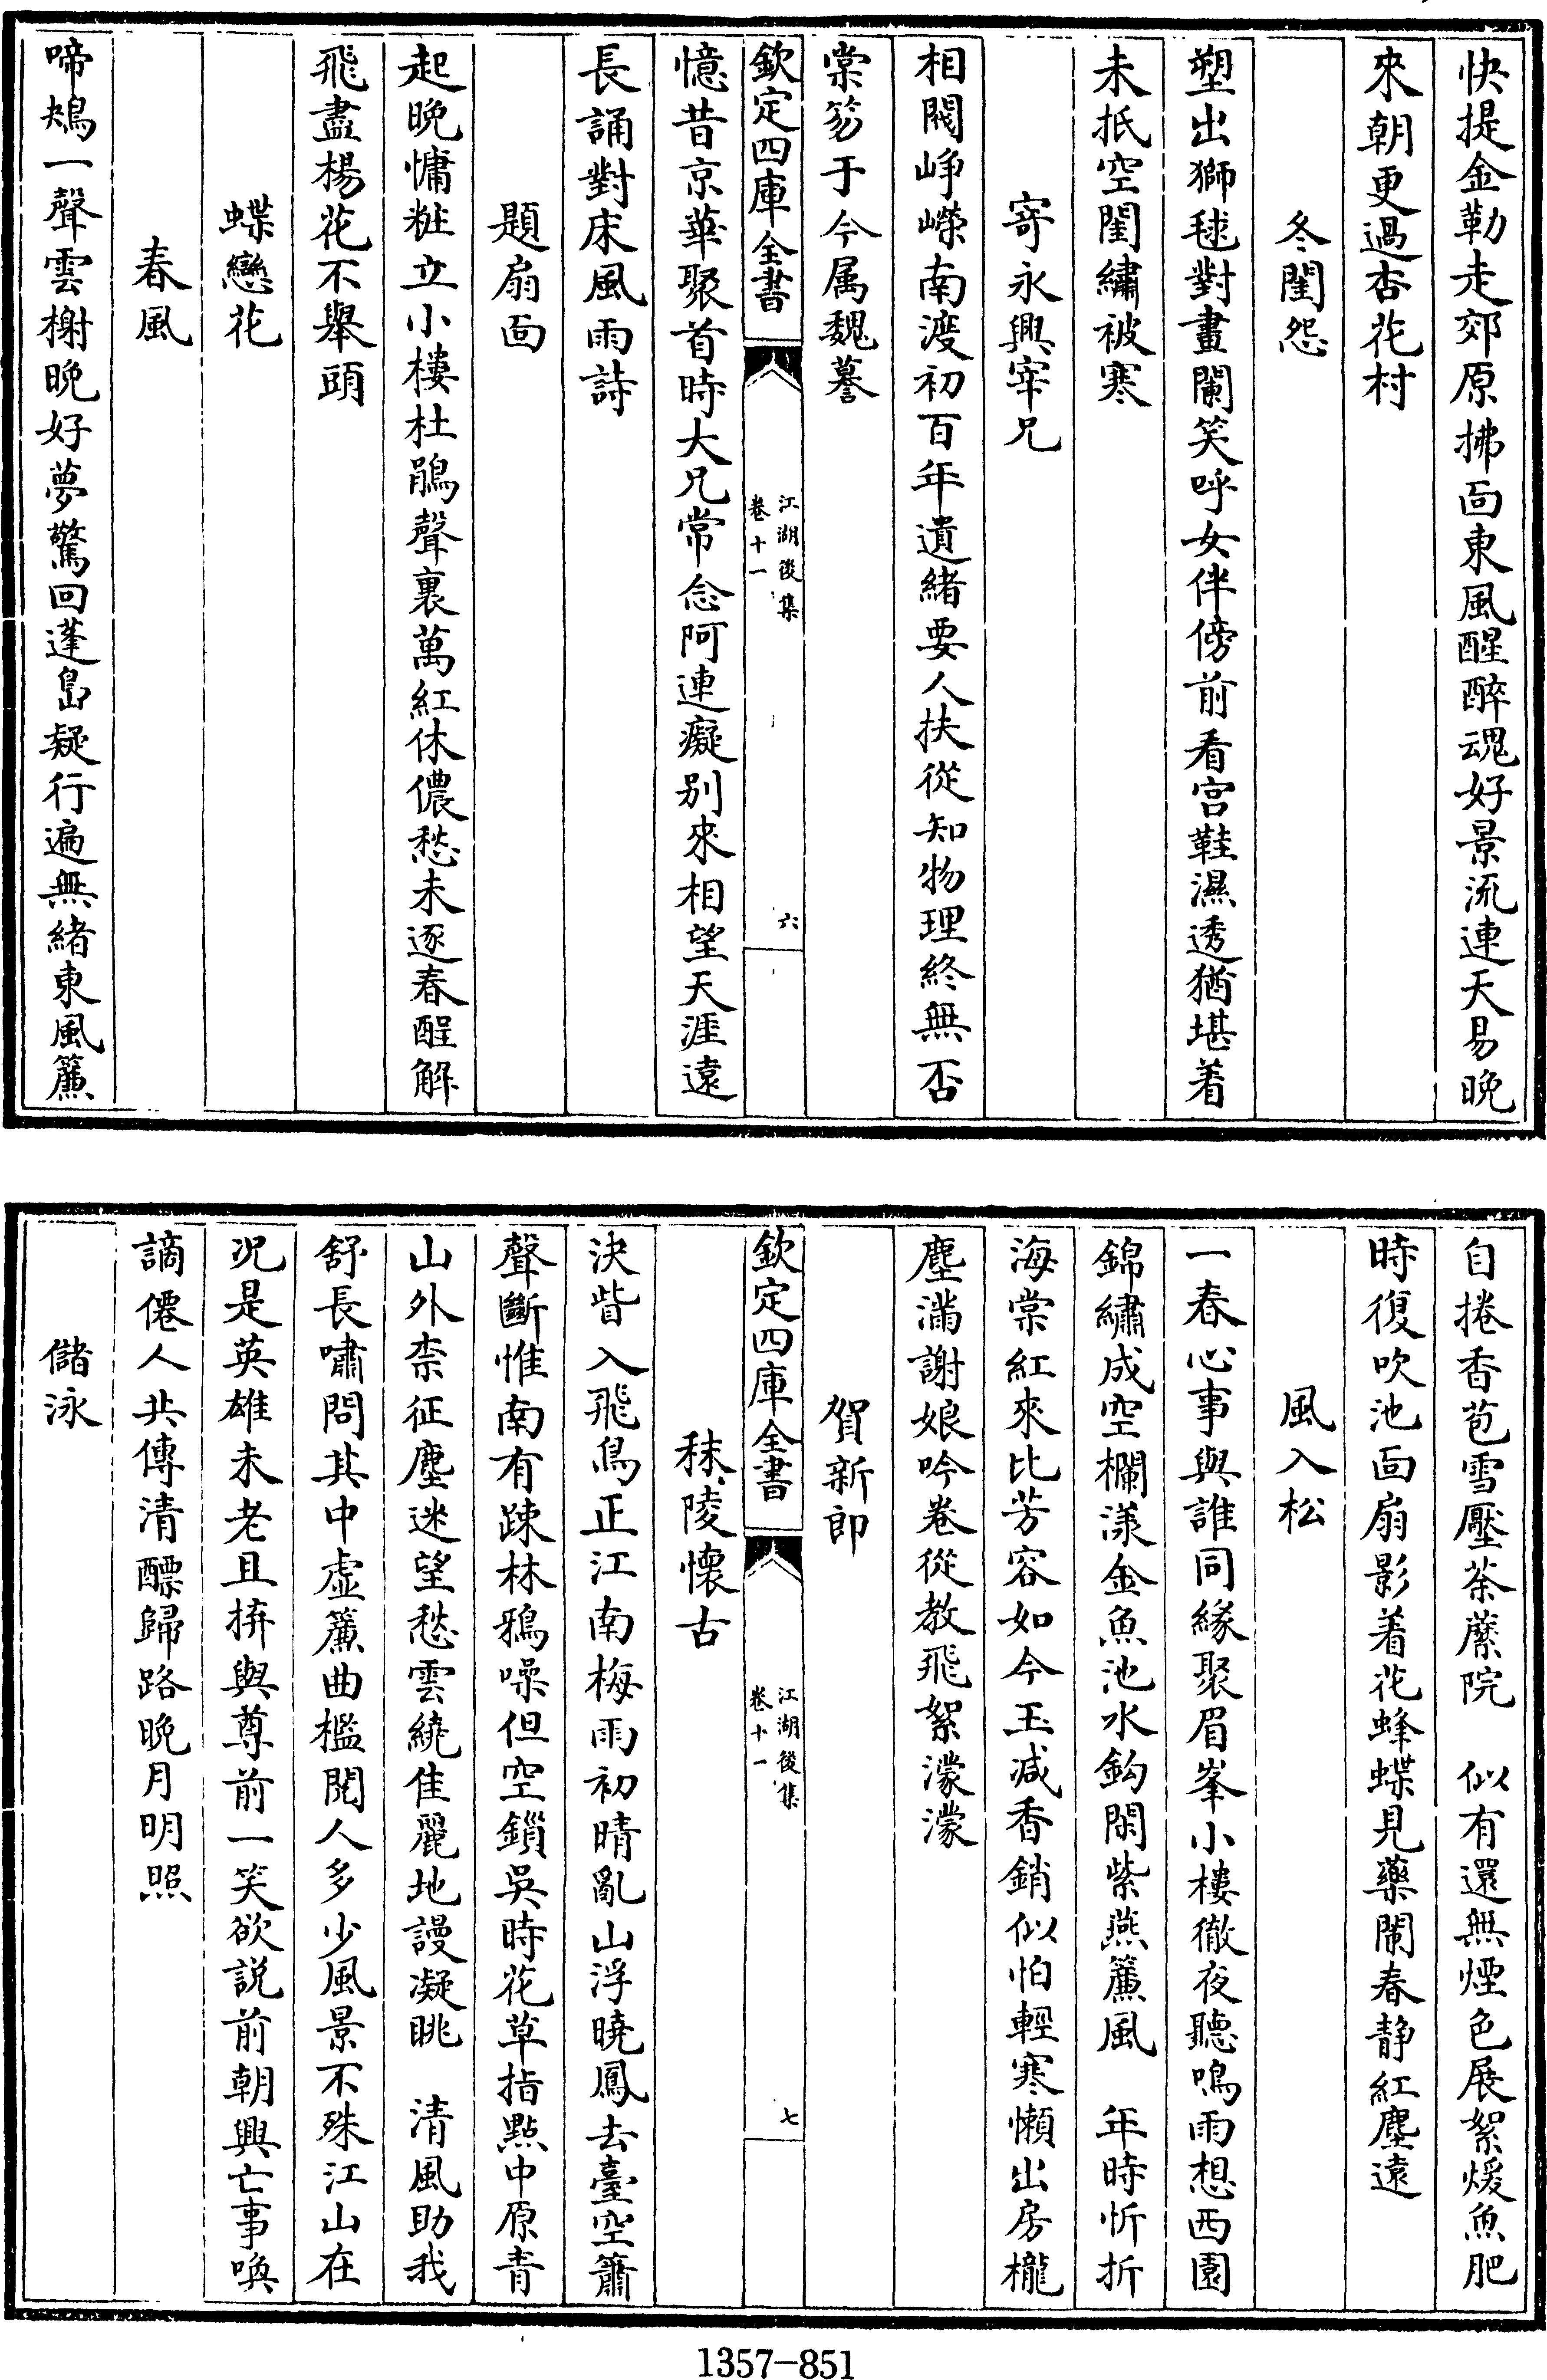 快提金勒走郊原拂面東風醒醉魂好景流連天易晚
來朝更過杏花村
冬閨怨
塑出獅毬對畫闌笑呼女伴傍前看宫鞋濕透猶堪着
未抵空閨繡被寒
寄永興宰兄
相閥崢嶸南渡初百年遺緒要人扶從知物理終無否
棠笏于今属魏謩
欽定四庫全書
江湖後集
卷十一
六
憶昔京華聚首時大兄常念阿連癡别來相望天涯遠
長誦對床風雨詩
題扇面
起晚慵粧立小樓杜鵑聲裏萬紅休儂愁未逐春酲解
飛盡楊花不舉頭
蝶戀花
春風
啼鴂一聲雲榭晚好夢驚回蓬島疑行遍無緒東風簾
自捲香苞雪壓荼䕷院　似有還無煙色展絮煖魚肥
時復吹池面扇影着花蜂蝶見藥闌春静紅塵遠
風入松
一春心事與誰同緣聚眉峯小樓徹夜聽鳴雨想西園
錦繡成空欄漾金魚池水鈎閑紫燕簾風　年時忻折
海棠紅來比芳容如今玉减香銷似怕輕寒懶出房櫳
塵滿謝娘吟卷從教飛絮濛濛
賀新郎
欽定四庫全書
江湖後集
卷十一
七
秣陵懷古
決眥入飛鳥正江南梅雨初晴亂山浮曉鳳去臺空簫
聲斷惟南有踈林鴉噪但空鎖吳時花草指點中原青
山外柰征塵迷望愁雲繞佳麗地謾凝眺　清風助我
舒長嘯問其中虚簾曲檻閱人多少風景不殊江山在
况是英雄未老且拚與尊前一笑欲説前朝興亡事喚
謫僊人共傳清醥歸路晚月明照
儲泳
1357-851